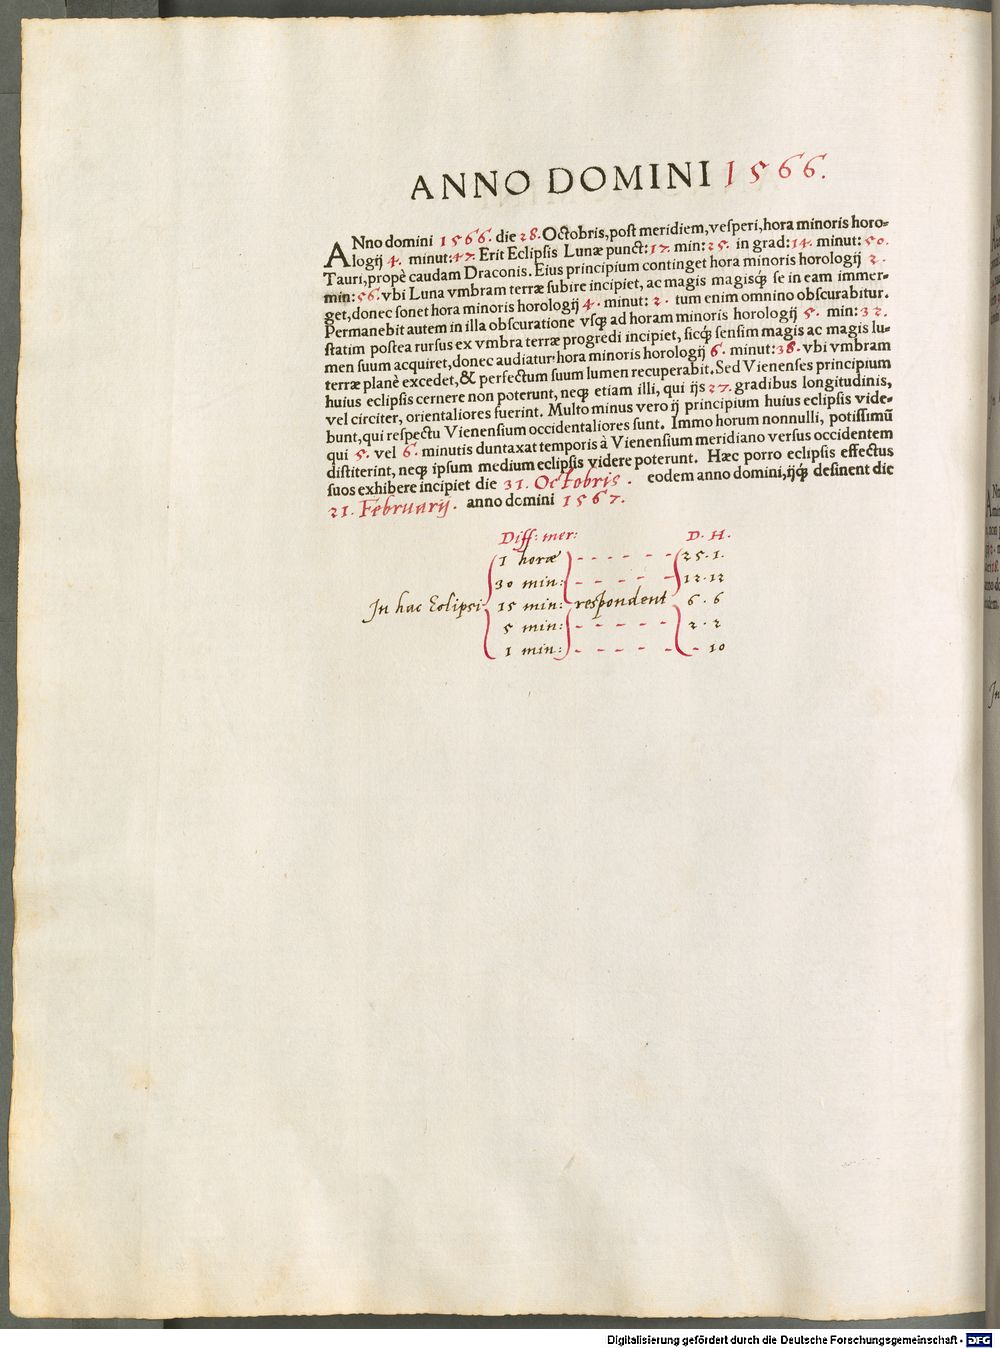 ANNO DOMINI 1566.
ANno domini 1566. die 28. Octobris, post meridiem, vesperi, hora minoris horo-
logij 4. minut: 47. Erit Eclipsis Lunæ punct: 17. min: 25. in grad: 14. minut: 50.
Tauri, propè caudam Draconis. Eius principium continget hora minoris horologij 2.
min: 56. vbi Luna vmbram terræ subire incipiet, ac magis magisq́; se in eam immer-
get, donec sonet hora minoris horologij 4. minut: 2. tum enim omnino obscurabitur.
Permanebit autem in illa obscuratione vsq; ad horam minoris horologij 5. min: 32.
statim postea rursus ex vmbra terræ progredi incipiet, sicq́; sensim magis ac magis lu-
men suum acquiret, donec audiatur hora minoris horologij 6. minut: 38. vbi vmbram
terræ planè excedet, & perfectum suum lumen recuperabit. Sed Vienenses principium
huius eclipsis cernere non poterunt, neq; etiam illi, qui ijs 27. gradibus longitudinis,
vel circiter, orientaliores fuerint. Multo minus vero ij principium huius eclipsis vide-
bunt, qui respectu Vienensium occidentaliores sunt. Immo horum nonnulli, potissimũ
qui 5. vel 6. minutis duntaxat temporis à Vienensium meridiano versus occidentem
distiterint, neq; ipsum medium eclipsis videre poterunt. Hæc porro eclipsis effectus
suos exhibere incipiet die 31. Octobris. eodem anno domini, ijq́; desinent die
21. Februarij. anno domini 1567.
Diff: mer: D. H.
1 horæ - - - - - 25. 1.
30 min: - - - - - 12. 12
In hac Eclipsi 15 min: respondent 6. 6
5 min: - - - - - 2. 2
1 min: - - - - - - 10
Digitalisierung gefördert durch die Deutsche Forschungsgemeinschaft - DFG